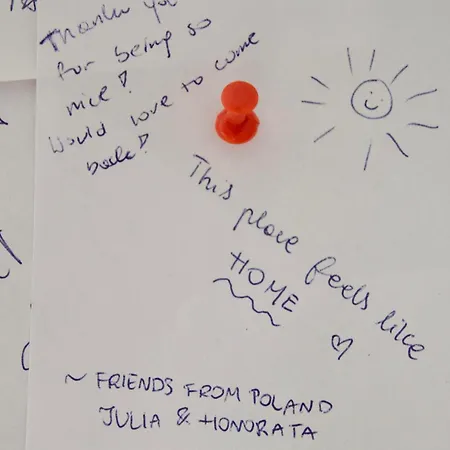 Thank you
for being so
nice!
Would love to come
back!
This
place feels like
HOME
~ FRIENDS FROM POLAND
JULIA & HONORATA